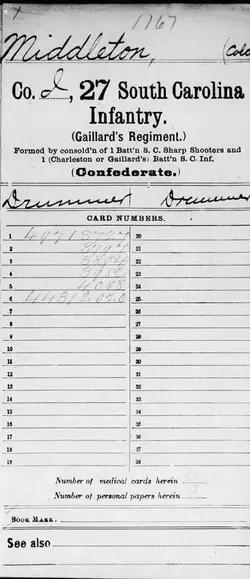 1167
Middleton, (Colo
Co. I, 27 South Carolina
Infantry.
(Gaillard's Regiment.)
Formed by consold'n of 1 Batt'n S. C. Sharp Shooters and
1 (Charleston or Gaillard's) Batt'n S. C. Inf.
(Confederate.)
Drummer Drummer
CARD NUMBERS.
1 20
2 21
3 22
4 23
5 4088 24
6 25
7 26
8 27
9 28
10 29
11 30
12 31
13 32
14 33
15 34
16 35
17 36
18 37
19 38
Number of medical cards herein
Number of personal papers herein
BOOK MARK:
See also